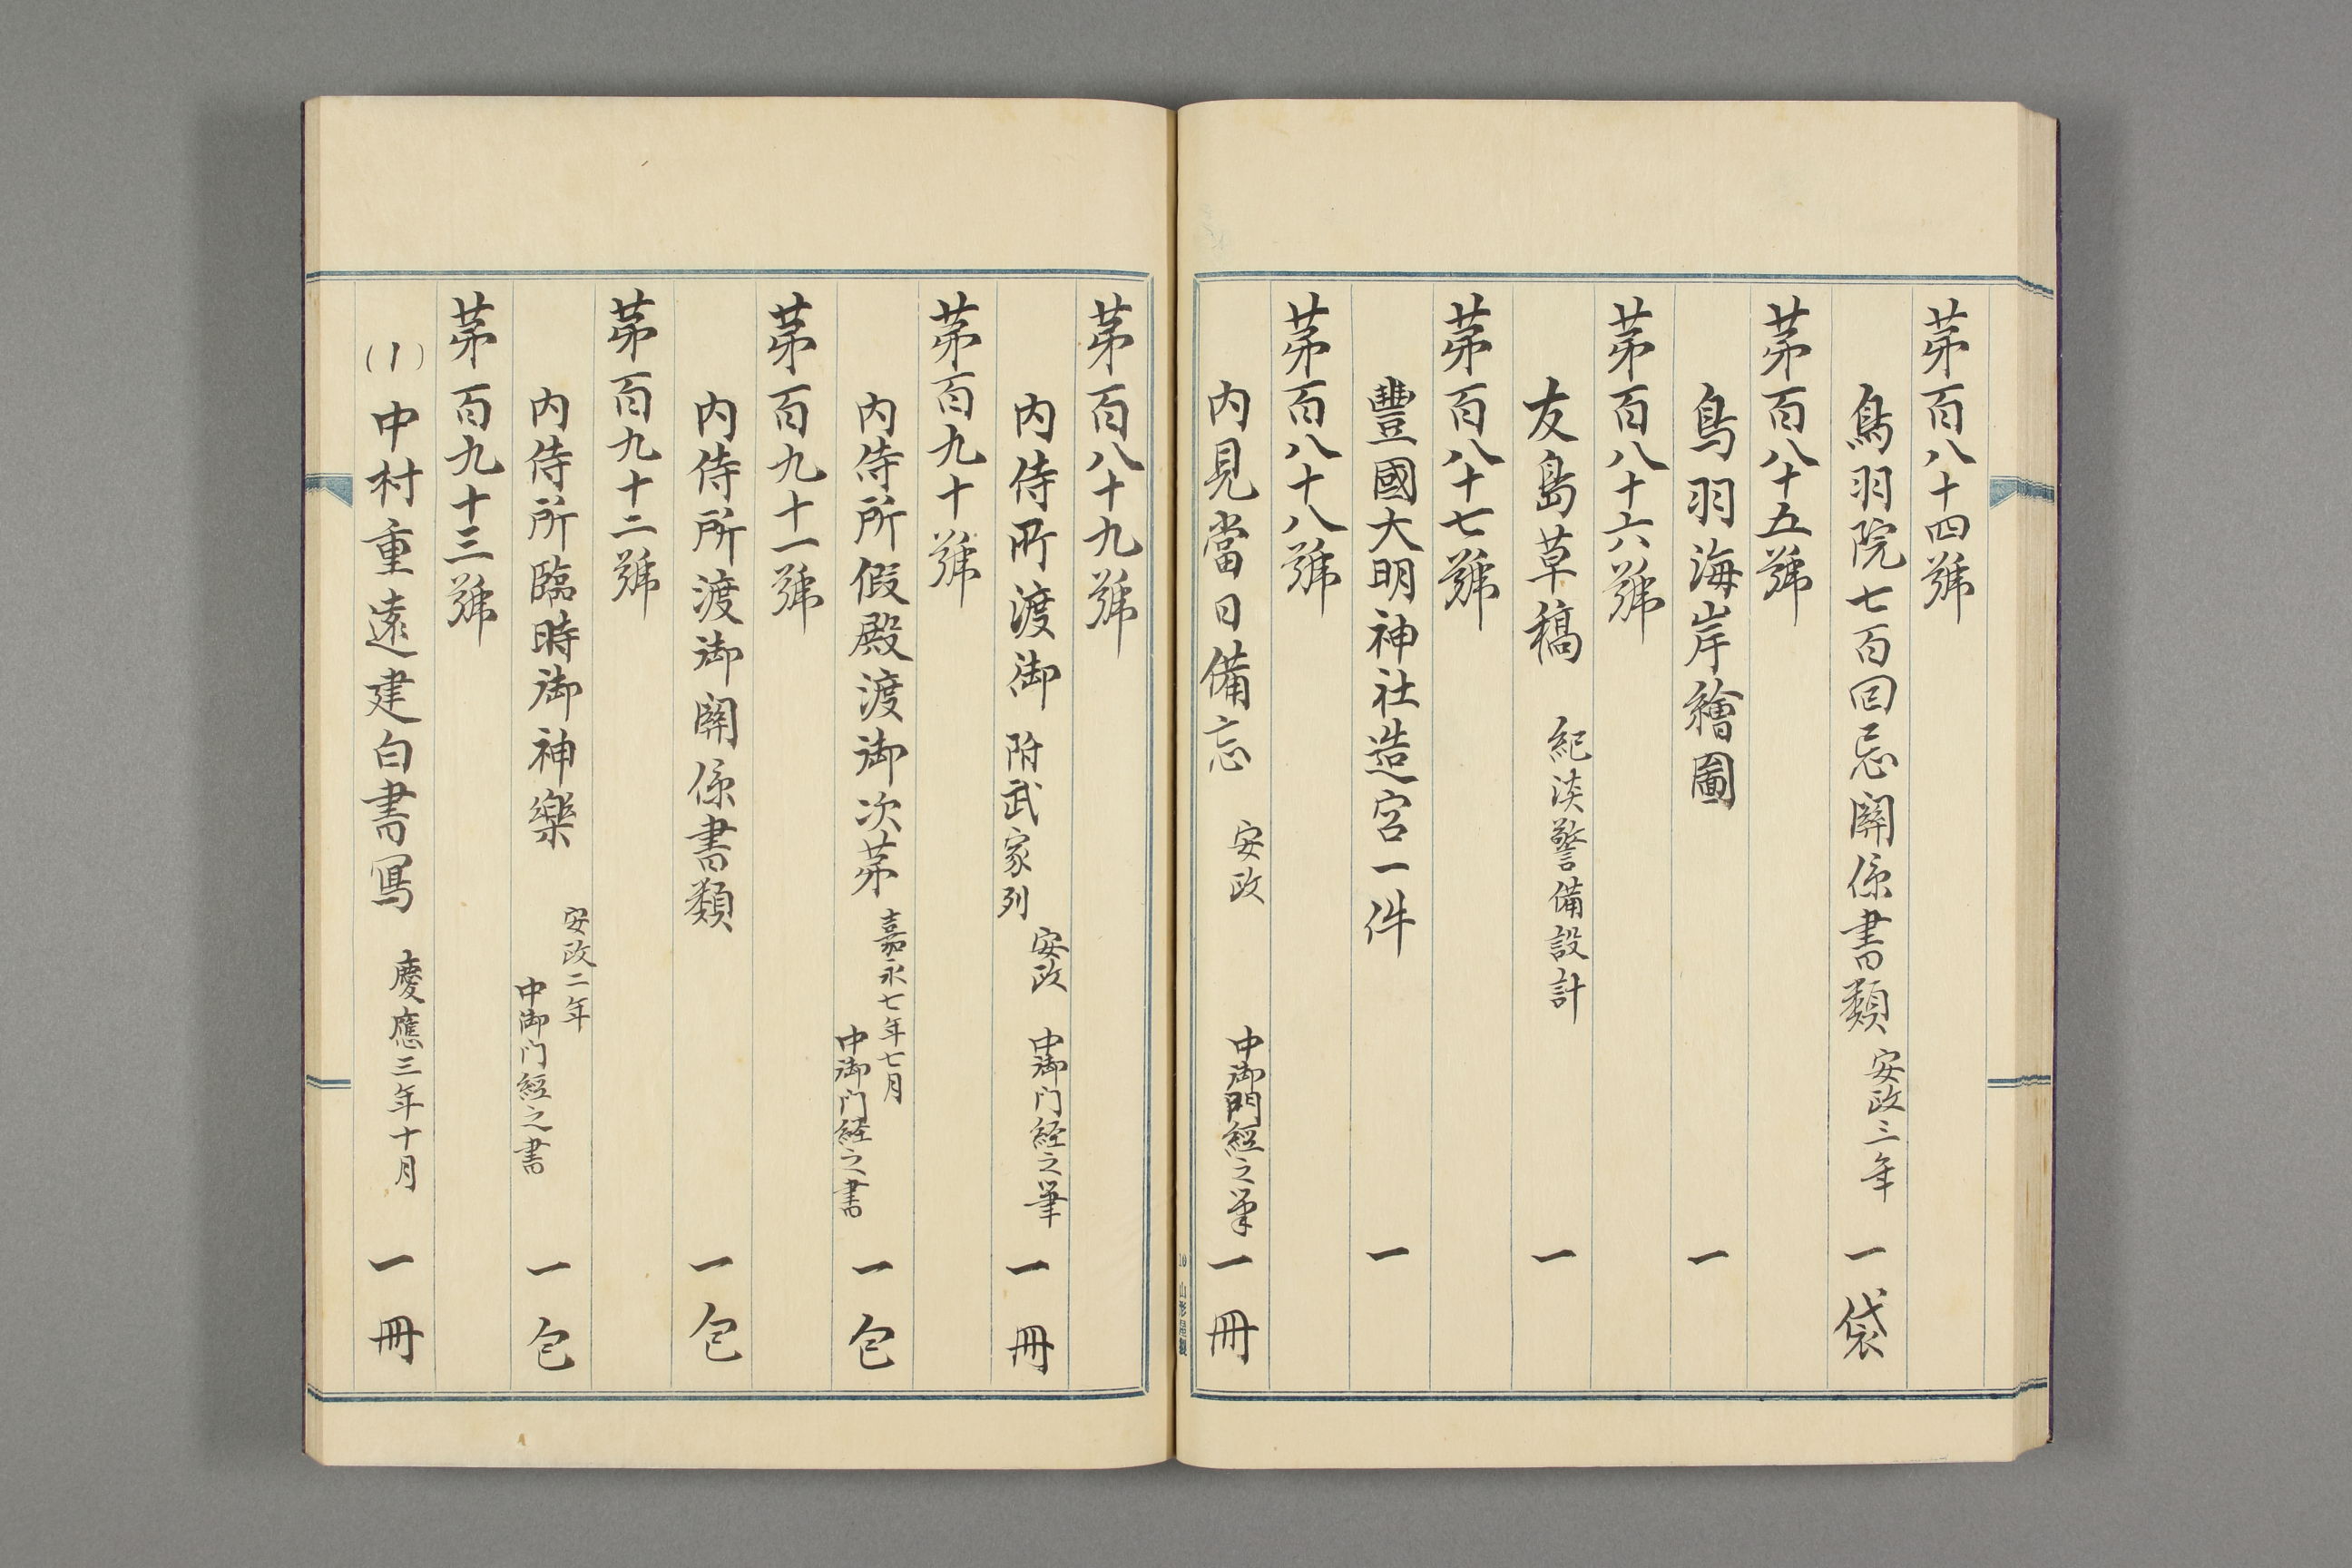 第百八十四號
鳥羽院七百回忌關係書類 安政三年 一袋
第百八十五號
鳥羽海岸繪圖 一
第百八十六號
友島草稿 紀淡警備設計 一
第百八十七號
豐國大明神社造宮一件 一
第百八十八號
内見當日備忘 安政 中御門經之筆 一冊
10 山形屋製
第百八十九號
内侍所渡御 附武家列 安政 中御门経之筆 一冊
第百九十號
内侍所假殿渡御次第 嘉永七年七月 中御门経之書 一包
第百九十一號
内侍所渡御關係書類 一包
第百九十二號
内侍所臨時御神樂 安政二年 中御门經之書 一包
第百九十三號
(1) 中村重遠建白書寫 慶應三年十月 一冊